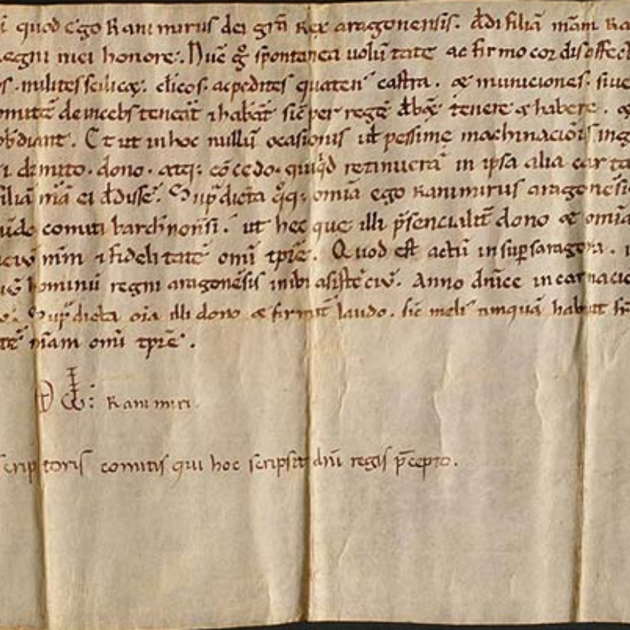 quod ego Ranimirus dei grã Rex aragonensis. dedi filiã meam
regni mei honore. Nũc g spontanea volũtate ac firmo cordis affec
milites scilicet. clicos. ac pedites quaten castra. & municiones. sive
de inceps teneãt & habeãt sic per regẽ debet tenere & habere. &
obediant. Et ut in hoc nullũ ocasionis vel pessime machinaciõis ing
dimito. dono. atq; cõcedo. quiqd retinuerã in ipsa alia carta
filiã meã ei dedisse. Supdicta omia ego Ranimirus aragonẽsi
comiti barchinonsi. ut hec que illi psencialit dono & omia
nrm & fidelitatẽ omi tpre. Quod est actũ in sup saragoza.
hominũ regni aragonẽsis inibi asistẽciũ. Anno dnice incarnacio
Supdicta oia illi dono & firmit laudo. sic meli unquã habuit
meam omi tpre.
Ranimiri
scriptoris comitis qui hoc scripsit dni regis pcepto.